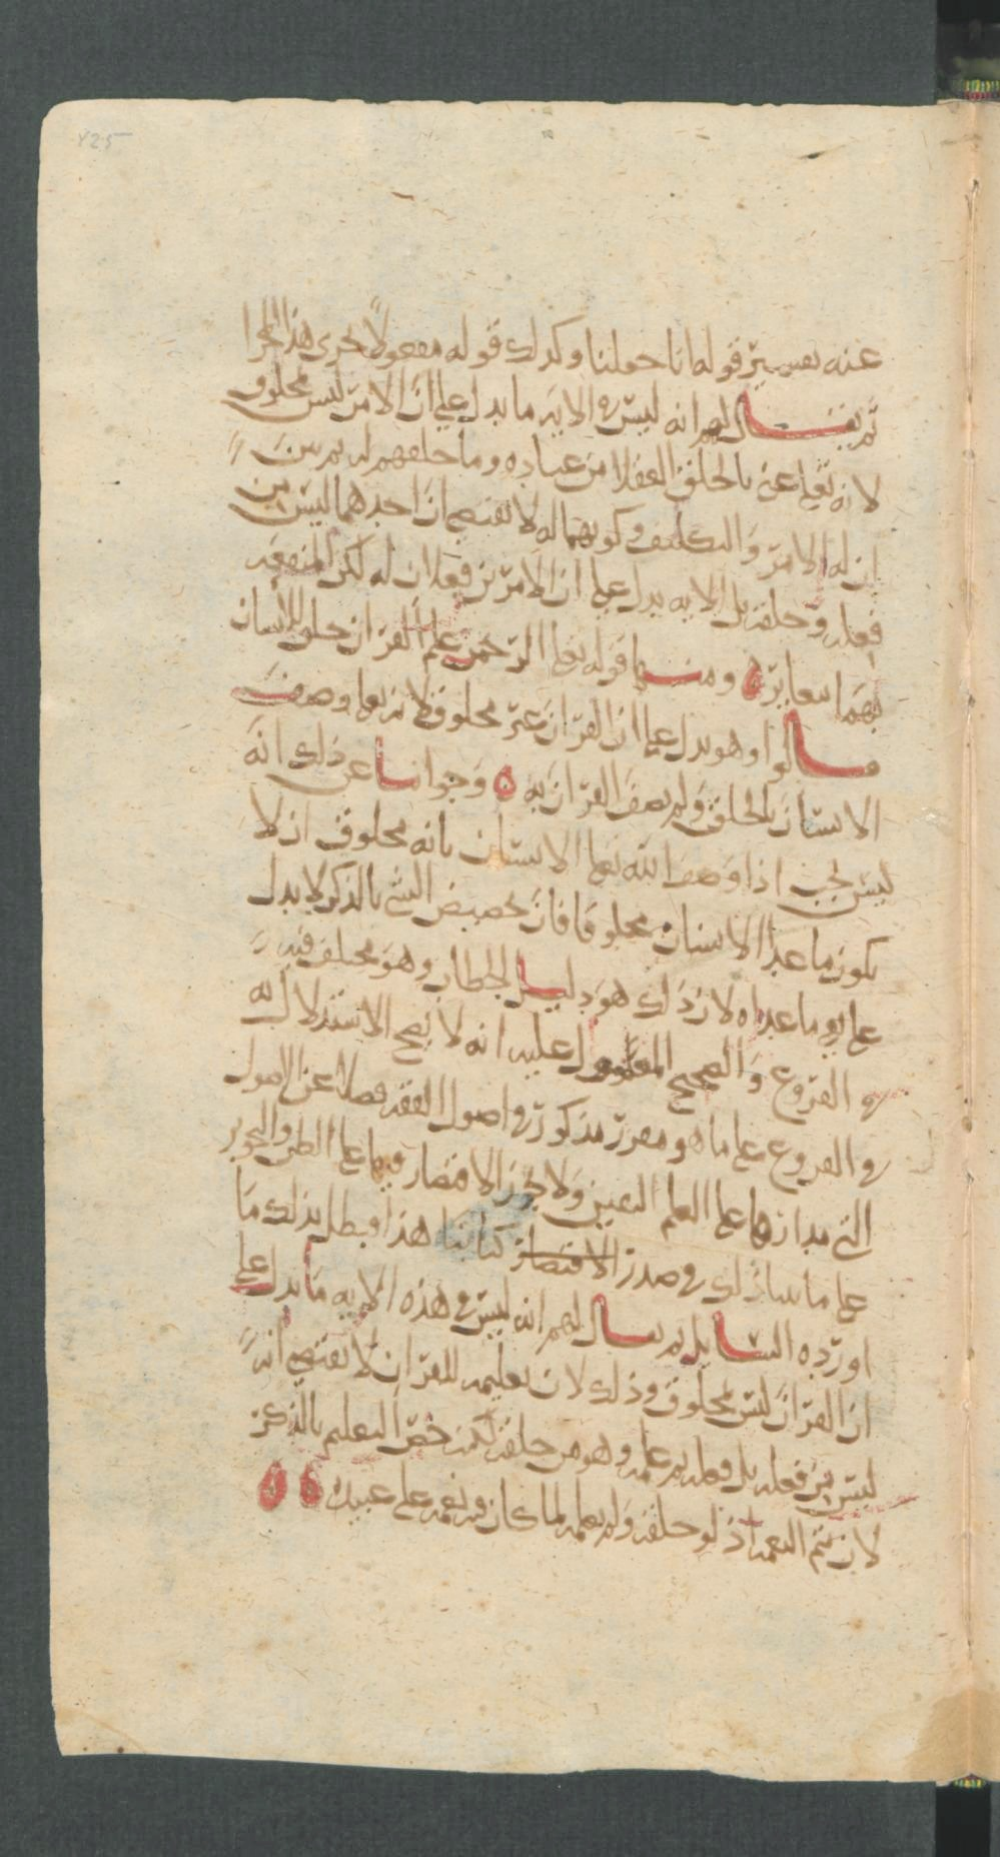 عنه بتفسير قوله انا جعلنا وكذلك قوله مفعولاً جرى هذا المجرا
ثم يقال لهم انه ليس في الايه ما يدل على ان الامر ليس بمخلوق
لانه تعلى عنى بالخلق العقلا من عباده وما خلقهم له ثم بين
ان له الامر والتكليف وكونهما له لا يقتضي ان احدهما ليس من
فعله وخلقه بل الايه يدل على ان الامر من فعله لان له لكن المنفعه
بهما متغايره ومنها قوله تعلى الرحمن علم القران خلق الانسان
قالوا وهو يدل على ان القران غير مخلوق لانه تعلى وصف
الانسان بالخلق ولم يصف القران به وجوابنا عن ذلك انه
ليس يجب اذا وصف الله تعلى الانسان بانه مخلوق ان لا
يكون ما عدا الانسان مخلوقا فان تخصيص الشي بالذكر لا يدل
على نفي ما عداه لان ذلك هو دليل الخطاب وهو مختلف فيه
في الفروع والصحيح المعمول عليه انه لا يصح الاستدلال به
في الفروع على ما هو مقرر مذكور في اصول الفقه فضلا عن الاصول
التي مدارها على العلم اليقين ولا يجوز الاقتصار فيها على الظن والتجويز
على ما بيناه لك في صدر كتابنا هذا فبطل بذلك ما
اورده السايل ثم يقال لهم انه ليس في هذه الايه ما يدل على
ان القران ليس بمخلوق وذلك لان تعليمه للقران لا يقتضي انه
ليس من فعله بل فعله ثم علمه وهو من خلقه لكنه خص التعليم بالذكر
لان به تتم النعمه اذ لو خلقه ولم يعلمه لما كان فيه نعمه على عبيده